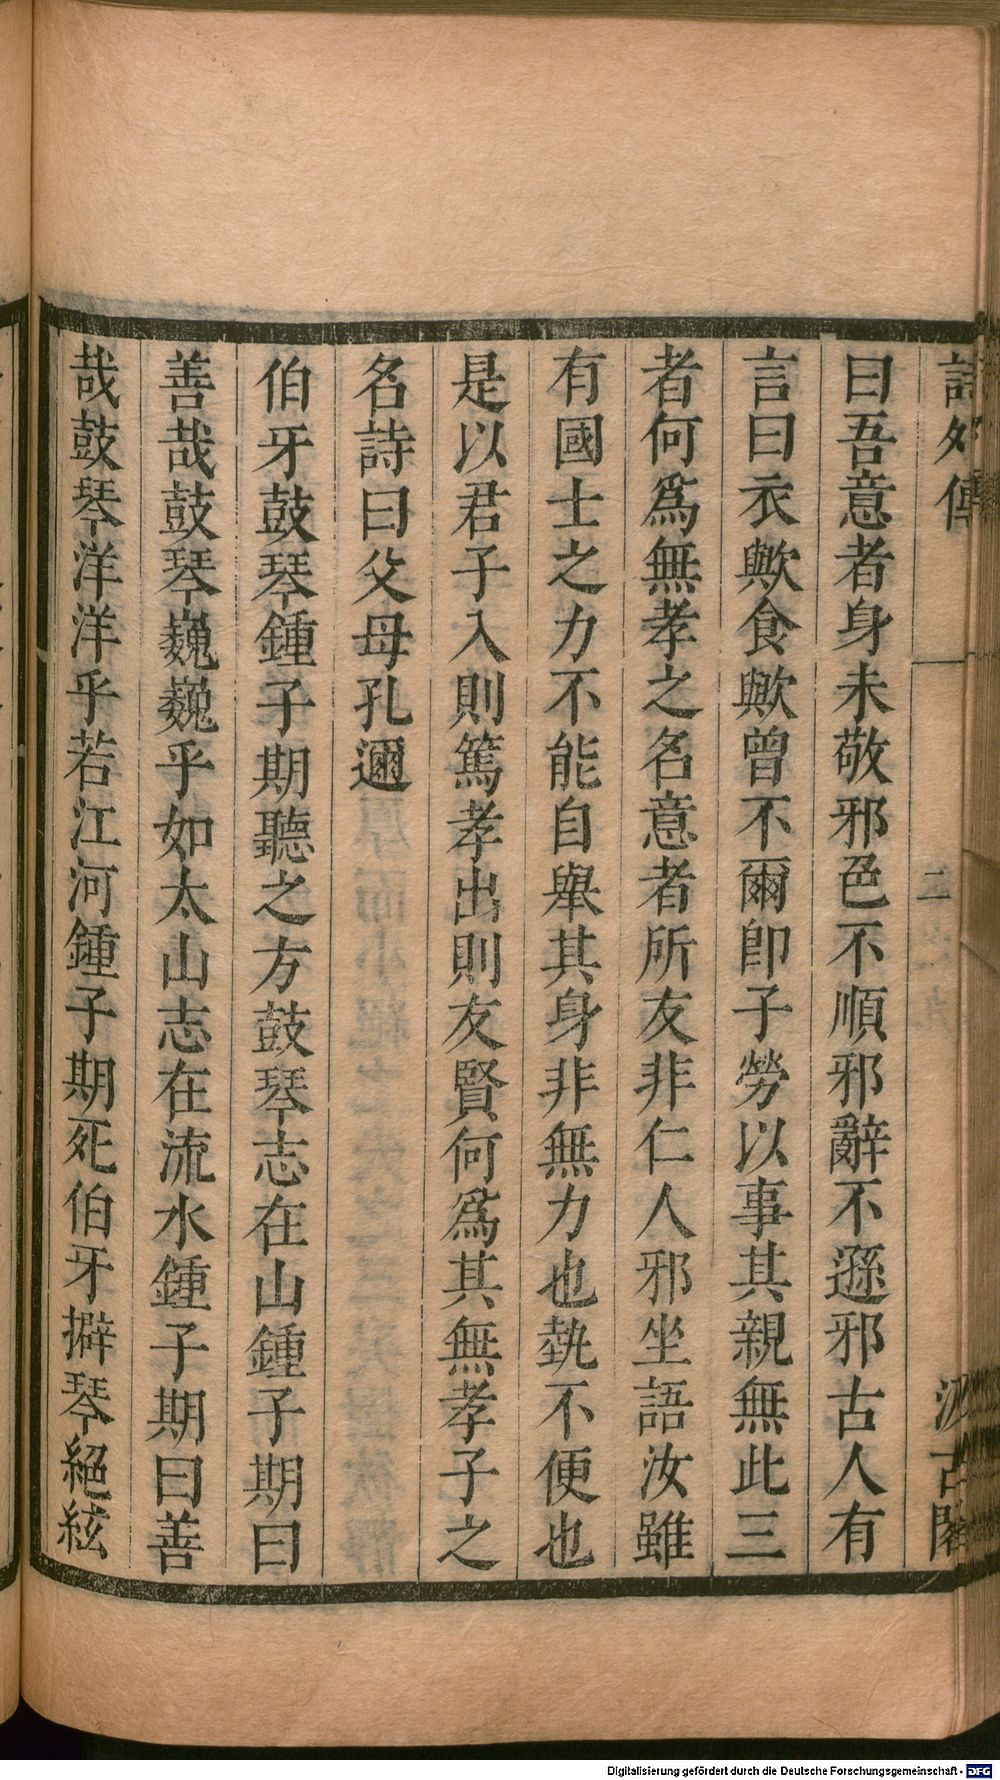 詩外傳 二 汲古閣
曰吾意者身未敬邪色不順邪辭不遜邪古人有
言曰衣歟食歟曾不爾卽子勞以事其親無此三
者何爲無孝之名意者所友非仁人邪坐語汝雖
有國士之力不能自舉其身非無力也埶不便也
是以君子入則篤孝出則友賢何爲其無孝子之
名詩曰父母孔邇
伯牙鼓琴鍾子期聽之方鼓琴志在山鍾子期曰
善哉鼓琴巍巍乎如太山志在流水鍾子期曰善
哉鼓琴洋洋乎若江河鍾子期死伯牙擗琴絕絃
Digitalisierung gefördert durch die Deutsche Forschungsgemeinschaft - DFG